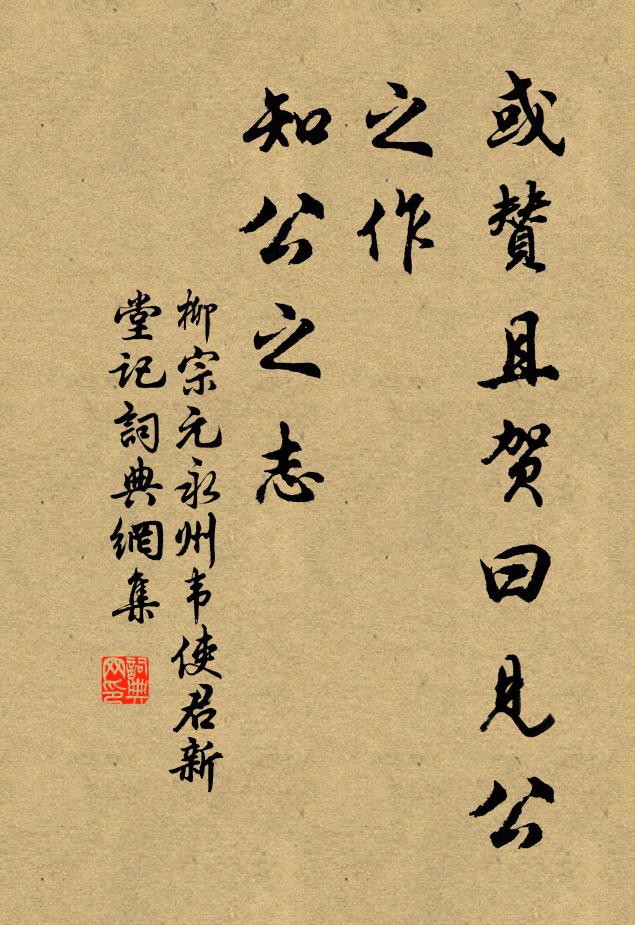 或赞且贺曰見公
之作
知公之志
柳宗元永州韦使君新
堂记詞典網集
詞典网印